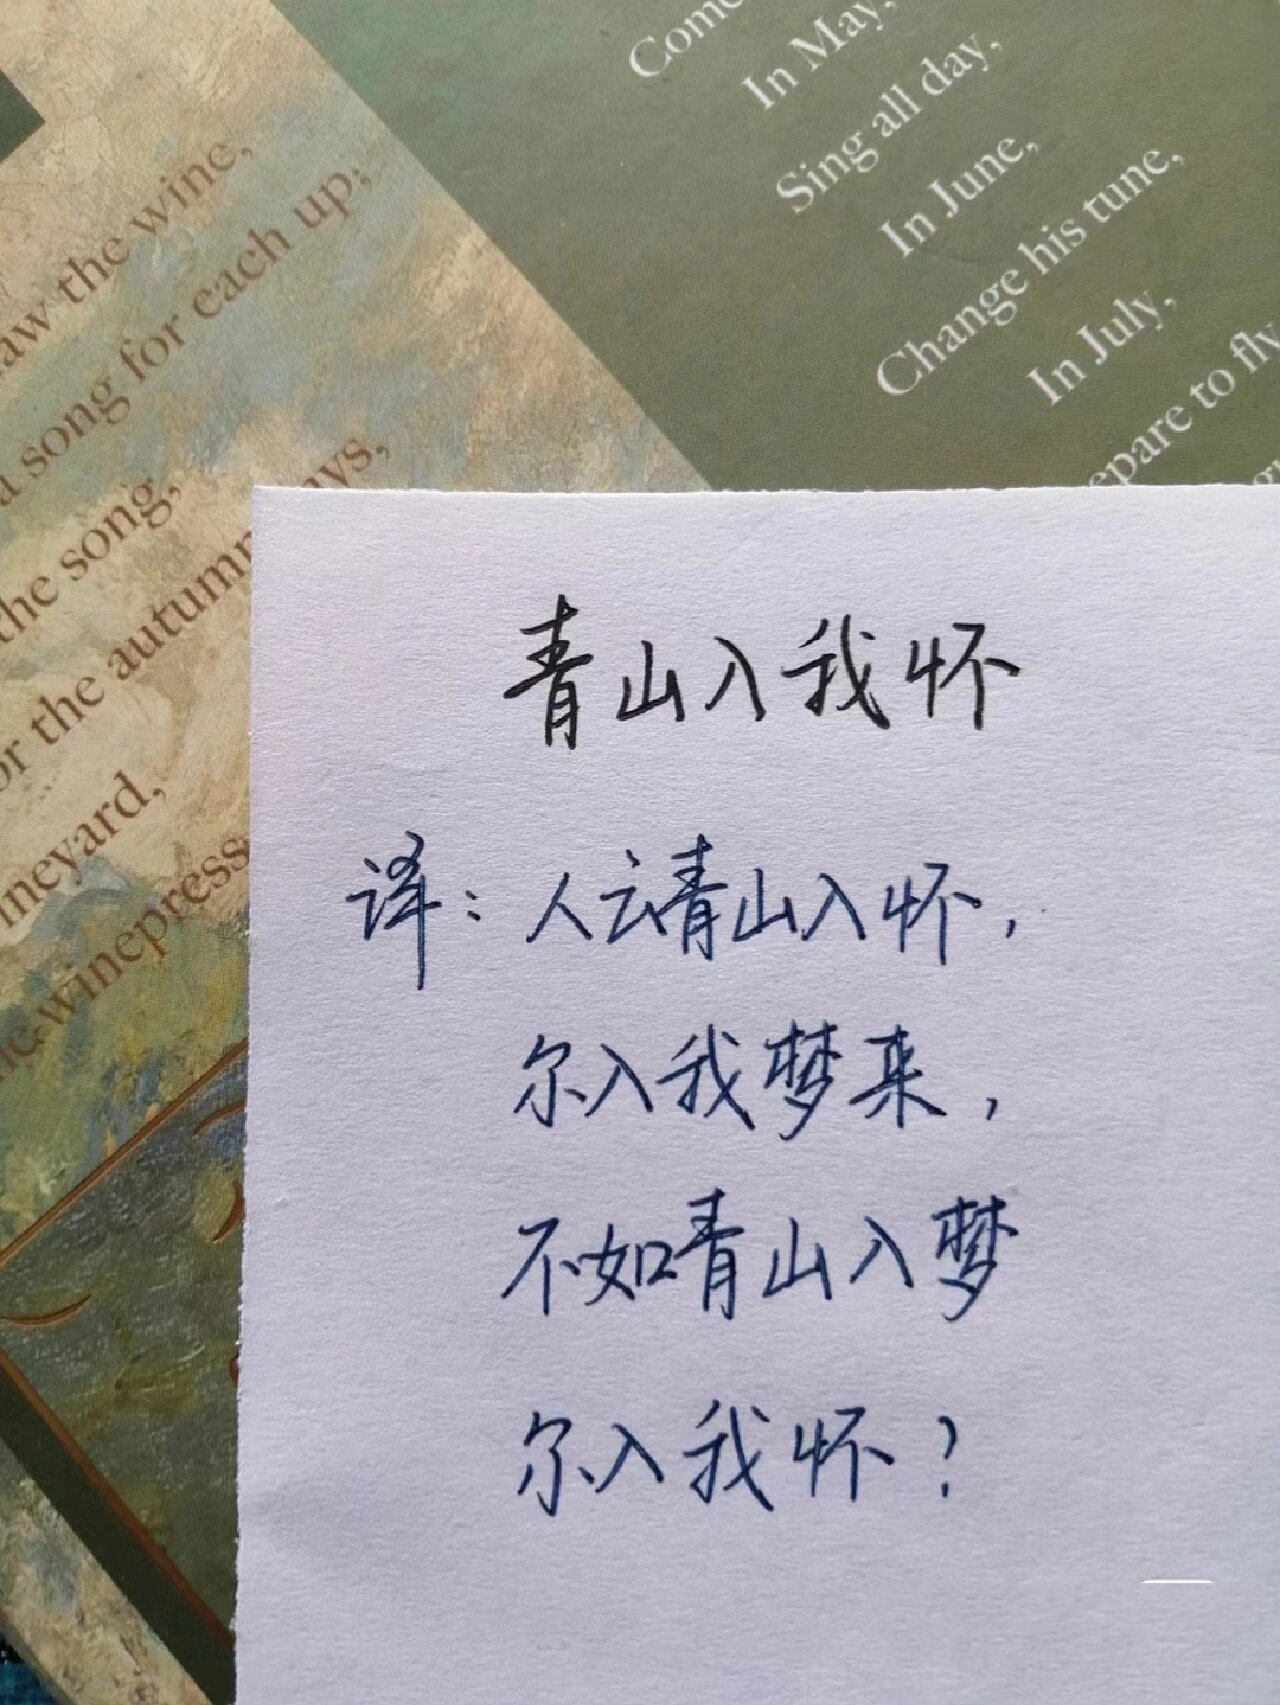 Come
In May,
Sing all day,
In June,
Change his tune,
In July,
epare to fly
aw the wine,
a song for each up;
the song,
or the autumn ays,
ineyard,
winepress
青山入我怀
译：人云青山入怀，
尔入我梦来，
不如青山入梦
尔入我怀？